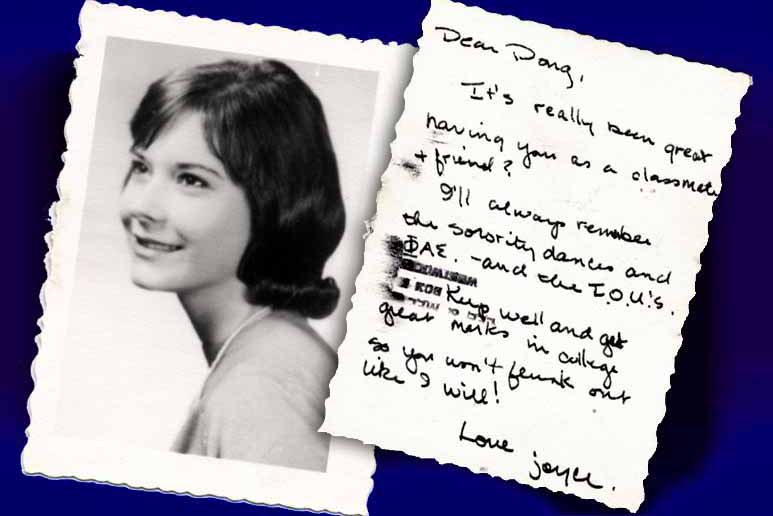 Dear Doug,
It's really been great
having you as a classmate
+ friend?
I'll always remember
the sorority dances and
ΦAE. - and the I.O.U's.
Keep well and get
great marks in college
so you won't flunk out
like I will!
Love
joyce.